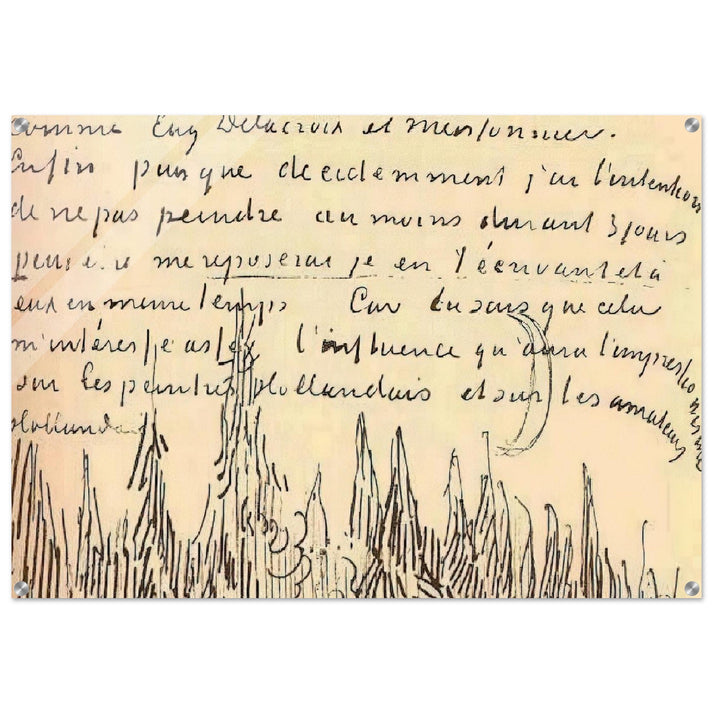 comme Eug Delacroix et Meissonnier.
Enfin puisque decidemment j'ai l'intention
de ne pas peindre au moins durant 3 jours
peut être me reposerai je en t'écrivant et à
eux en meme temps Car tu sais que cela
m'intéresse assez l'influence qu'aura l'impressionisme
sur les peintres Hollandais et sur les amateurs
Hollandais